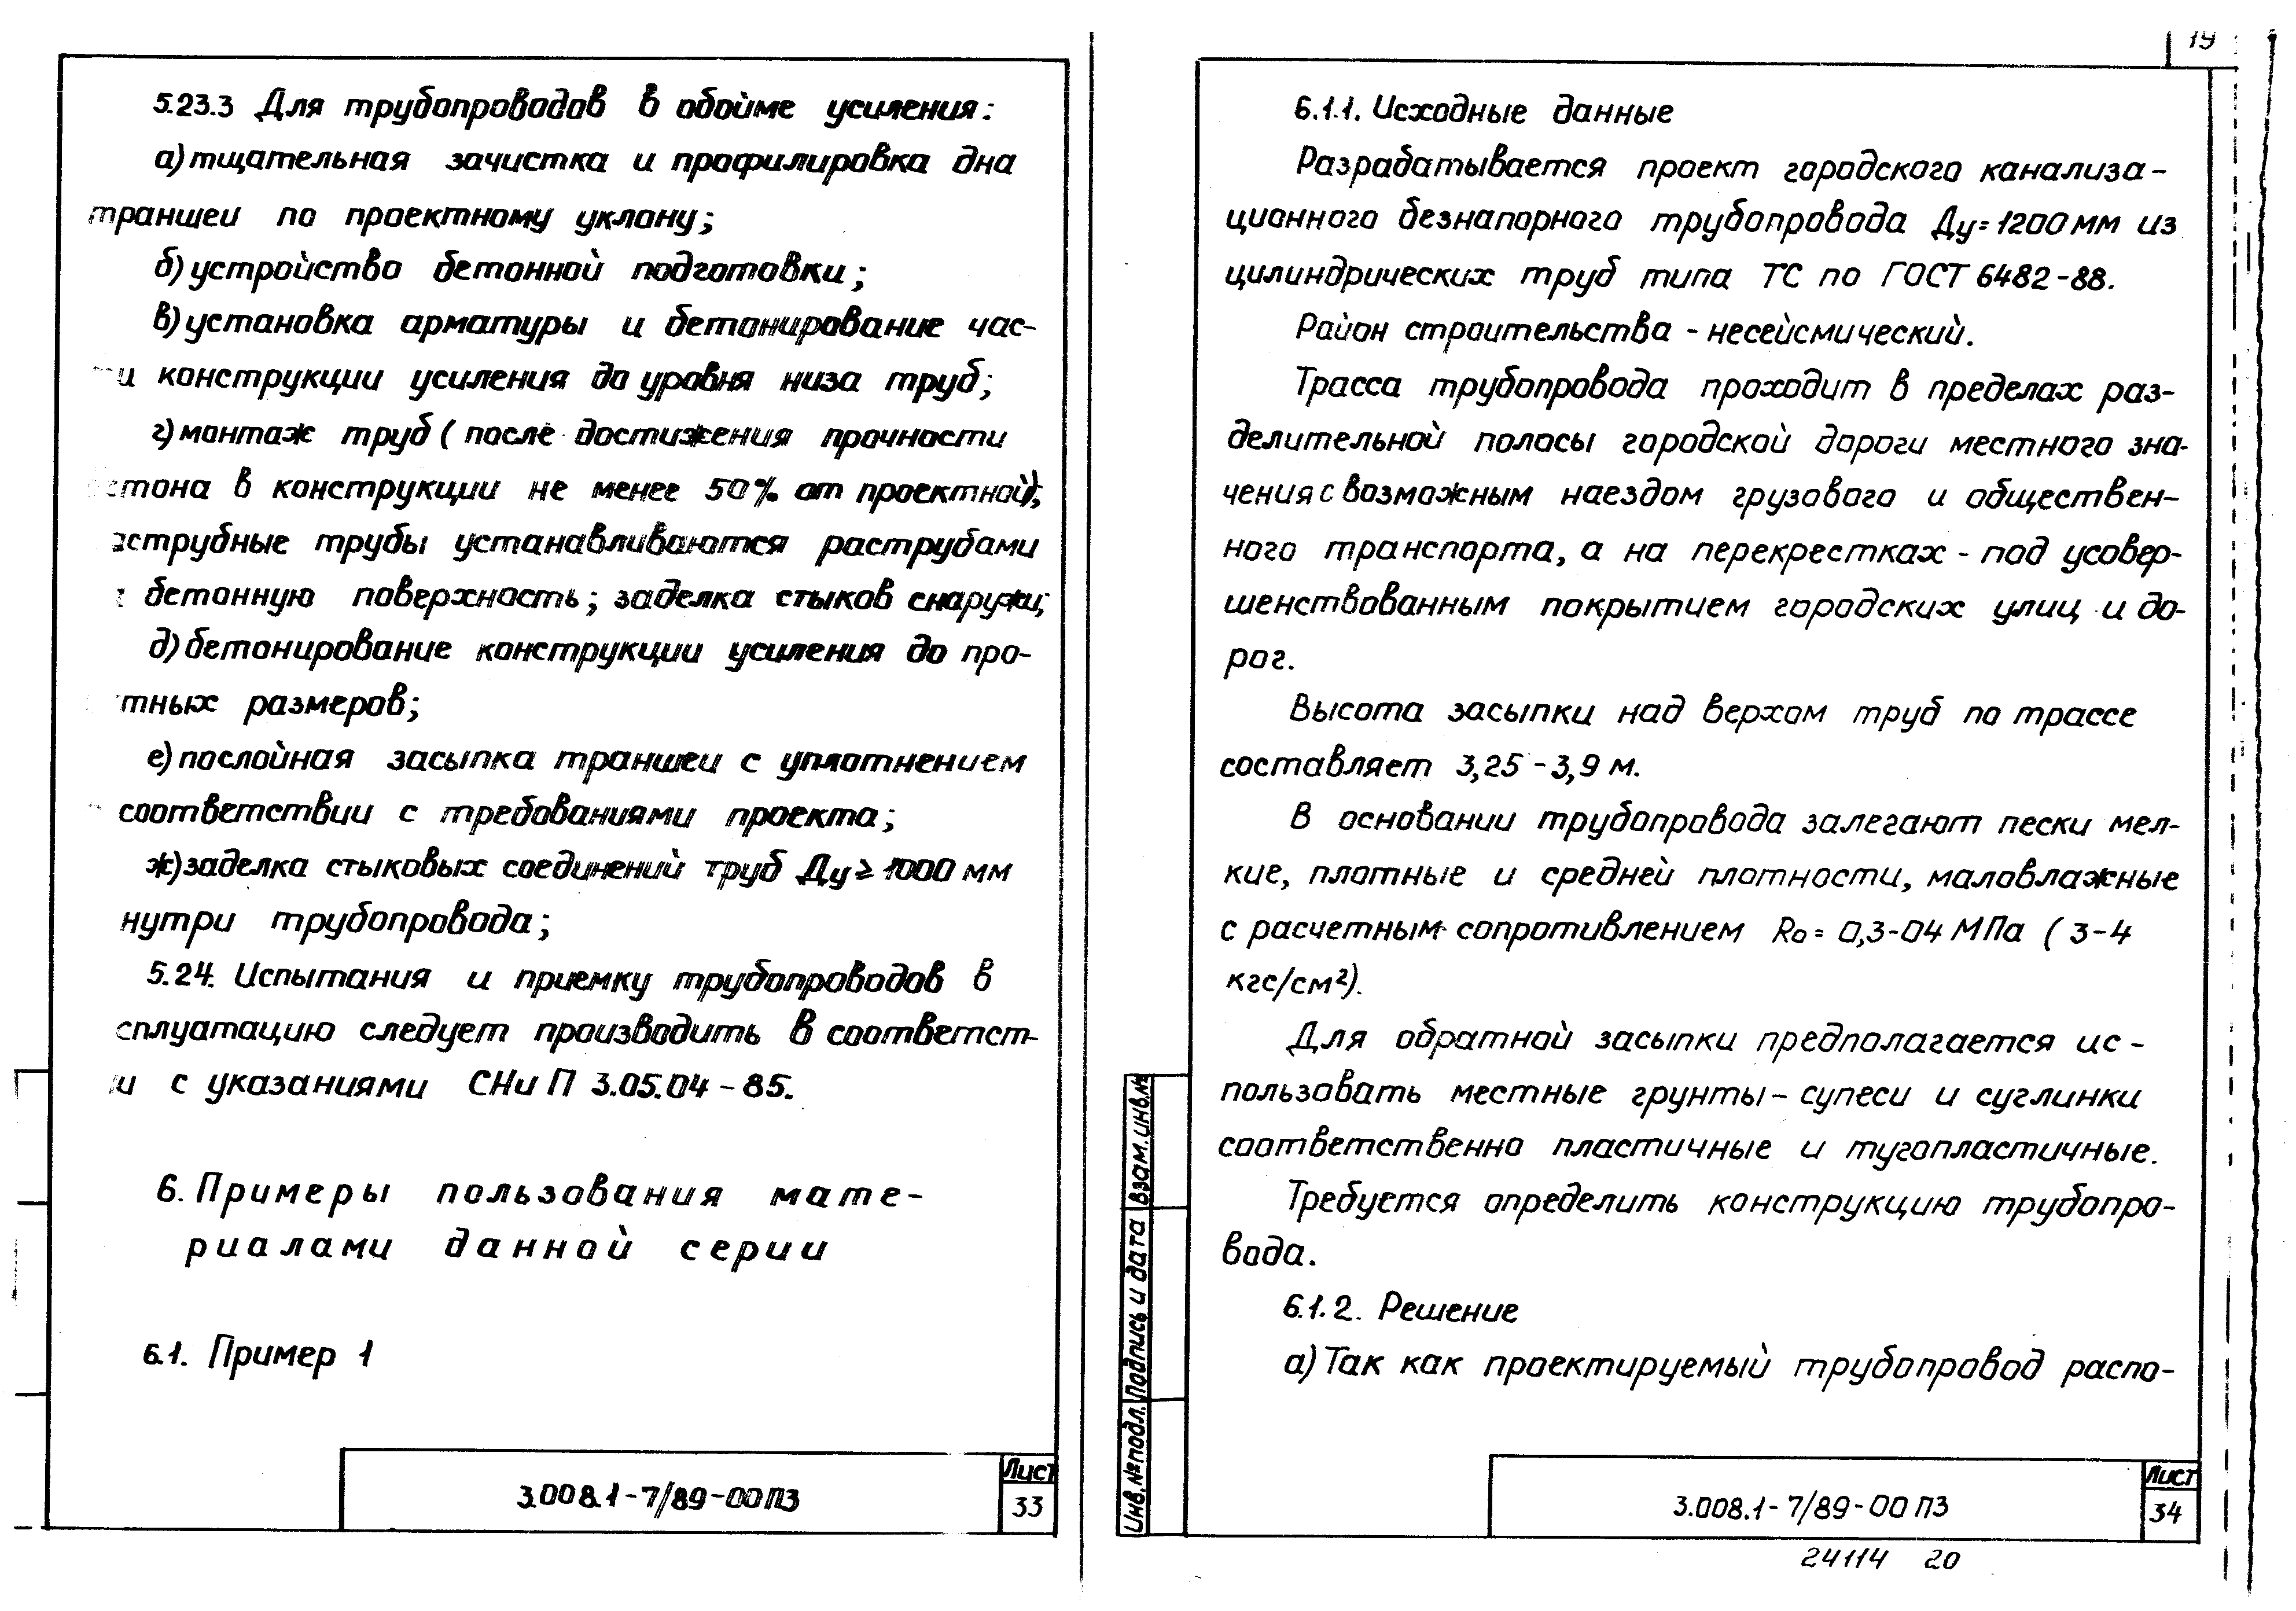 5.23.3 Для трубопроводов в обойме усиления:
а) тщательная зачистка и профилировка дна
траншеи по проектному уклону;
б) устройство бетонной подготовки;
в) установка арматуры и бетонирование час-
и конструкции усиления до уровня низа труб;
г) монтаж труб (после достижения прочности
етона в конструкции не менее 50% от проектной);
аструбные трубы устанавливаются раструбами
бетонную поверхность; заделка стыков снаружи;
д) бетонирование конструкции усиления до про-
тных размеров;
е) послойная засыпка траншеи с уплотнением
соответствии с требованиями проекта;
ж) заделка стыковых соединений труб Ду ≥ 1000 мм
нутри трубопровода;
5.24. Испытания и приемку трубопроводов в
сплуатацию следует производить в соответст-
и с указаниями СНиП 3.05.04-85.
6. Примеры пользования мате-
риалами данной серии
6.1. Пример 1
3.008.1-7/89-00ПЗ
Лист
33
19
6.1.1. Исходные данные
Разрабатывается проект городского канализа-
ционного безнапорного трубопровода Ду=1200 мм из
цилиндрических труб типа ТС по ГОСТ 6482-88.
Район строительства - несейсмический.
Трасса трубопровода проходит в пределах раз-
делительной полосы городской дороги местного зна-
чения с возможным наездом грузового и обществен-
ного транспорта, а на перекрестках - под усовер-
шенствованным покрытием городских улиц и до-
рог.
Высота засыпки над верхом труб по трассе
составляет 3,25-3,9 м.
В основании трубопровода залегают пески мел-
кие, плотные и средней плотности, маловлажные
с расчетным сопротивлением Rо = 0,3-04 МПа (3-4
кгс/см²).
Для обратной засыпки предполагается ис-
пользовать местные грунты - супеси и суглинки
соответственно пластичные и тугопластичные.
Требуется определить конструкцию трубопро-
вода.
6.1.2. Решение
а) Так как проектируемый трубопровод распо-
Инв.№подл. Подпись и дата Взам.инв.№
3.008.1-7/89-00 ПЗ
Лист
34
24114 20